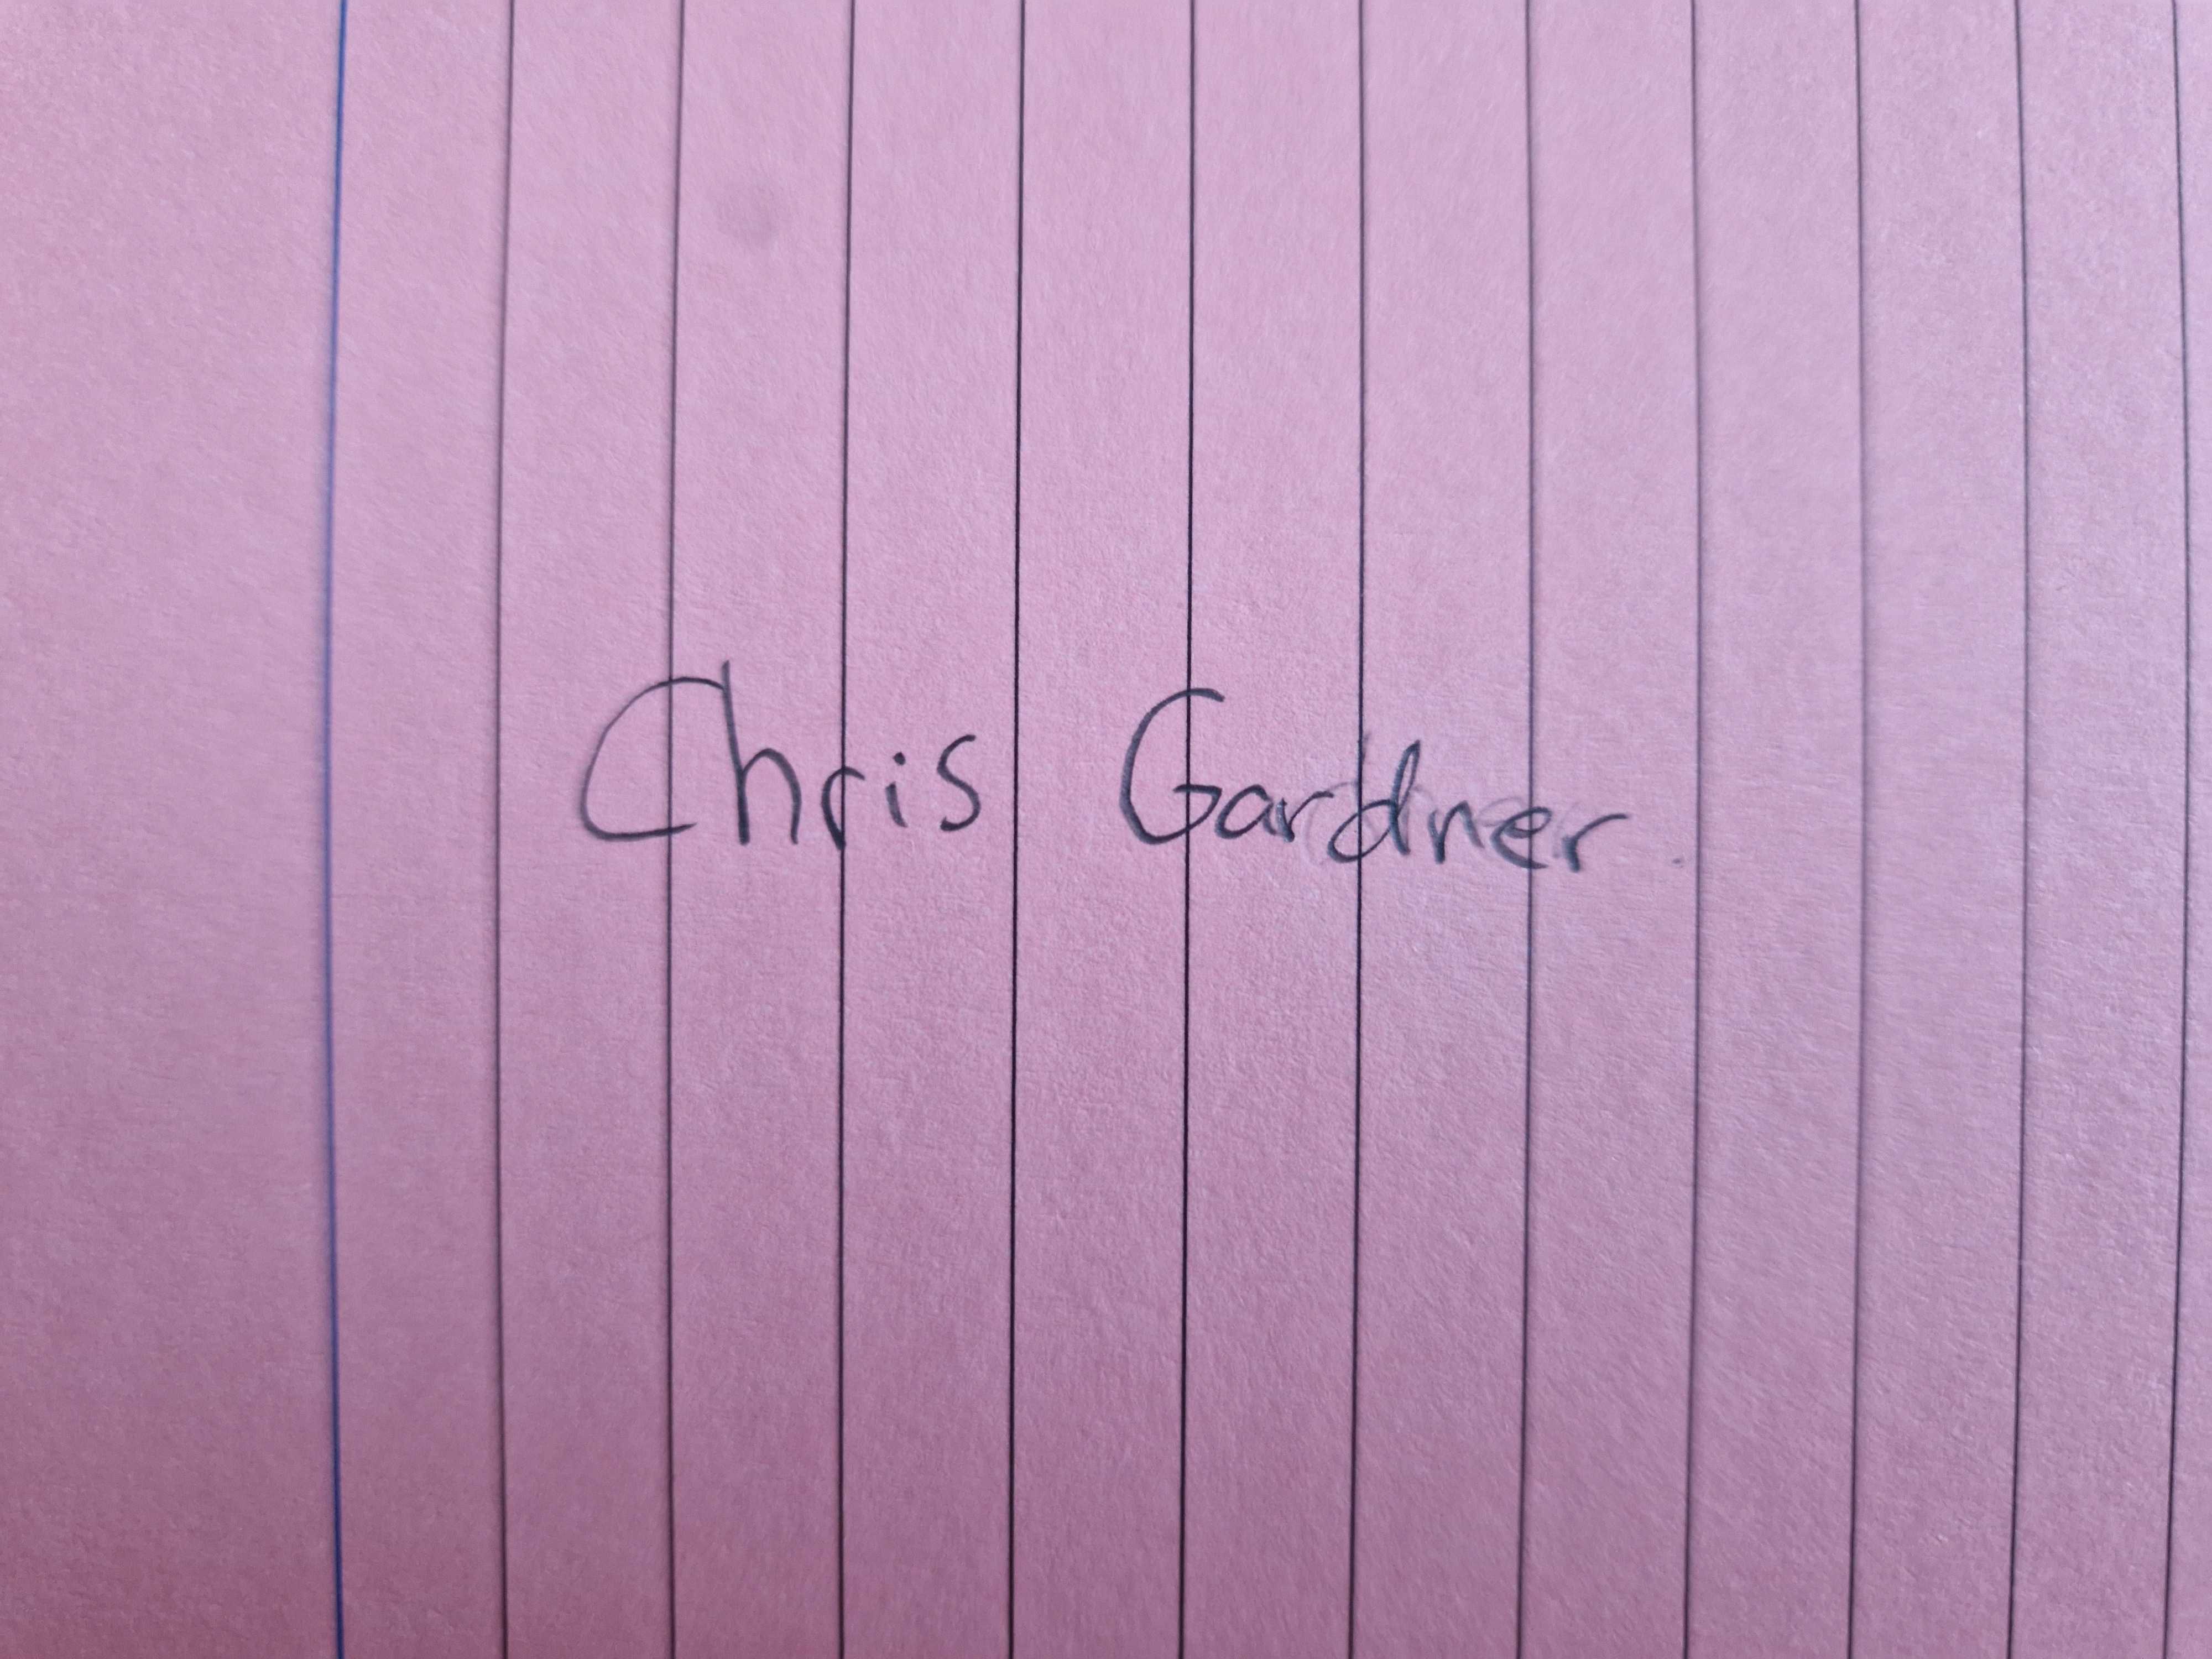 Chris Gardner